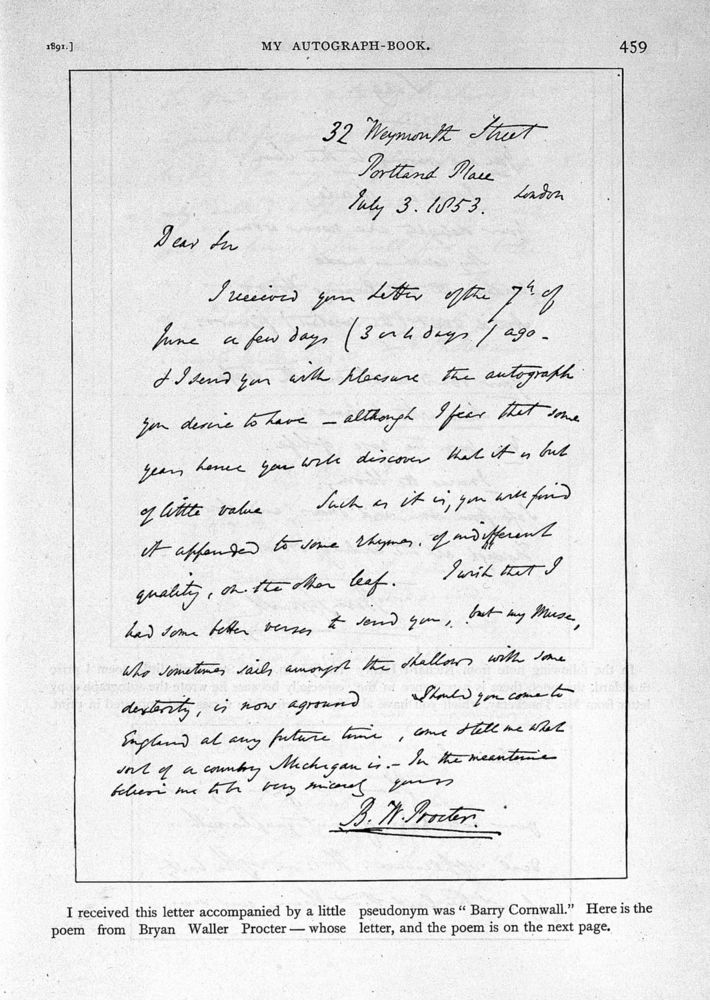 1891.] MY AUTOGRAPH-BOOK. 459
32 Weymouth Street
Portland Place
London
July 3. 1853.
Dear Sir
I received your Letter of the 7th of
June a few days (3 or 4 days) ago -
& I send you with pleasure the autograph
you desire to have - although I fear that some
years hence you will discover that it is but
of little value Such as it is, you will find
it appended to some rhymes, of indifferent
quality, on the other leaf. I wish that I
had some better verses to send you, but my Muse,
who sometimes sails amongst the shallows with some
dexterity, is now aground Should you come to
England at any future time, come & tell me what
sort of a country Michigan is. - In the meantime
believe me to be very sincerely yours
B. W. Procter.
I received this letter accompanied by a little
poem from Bryan Waller Procter — whose
pseudonym was "Barry Cornwall." Here is the
letter, and the poem is on the next page.